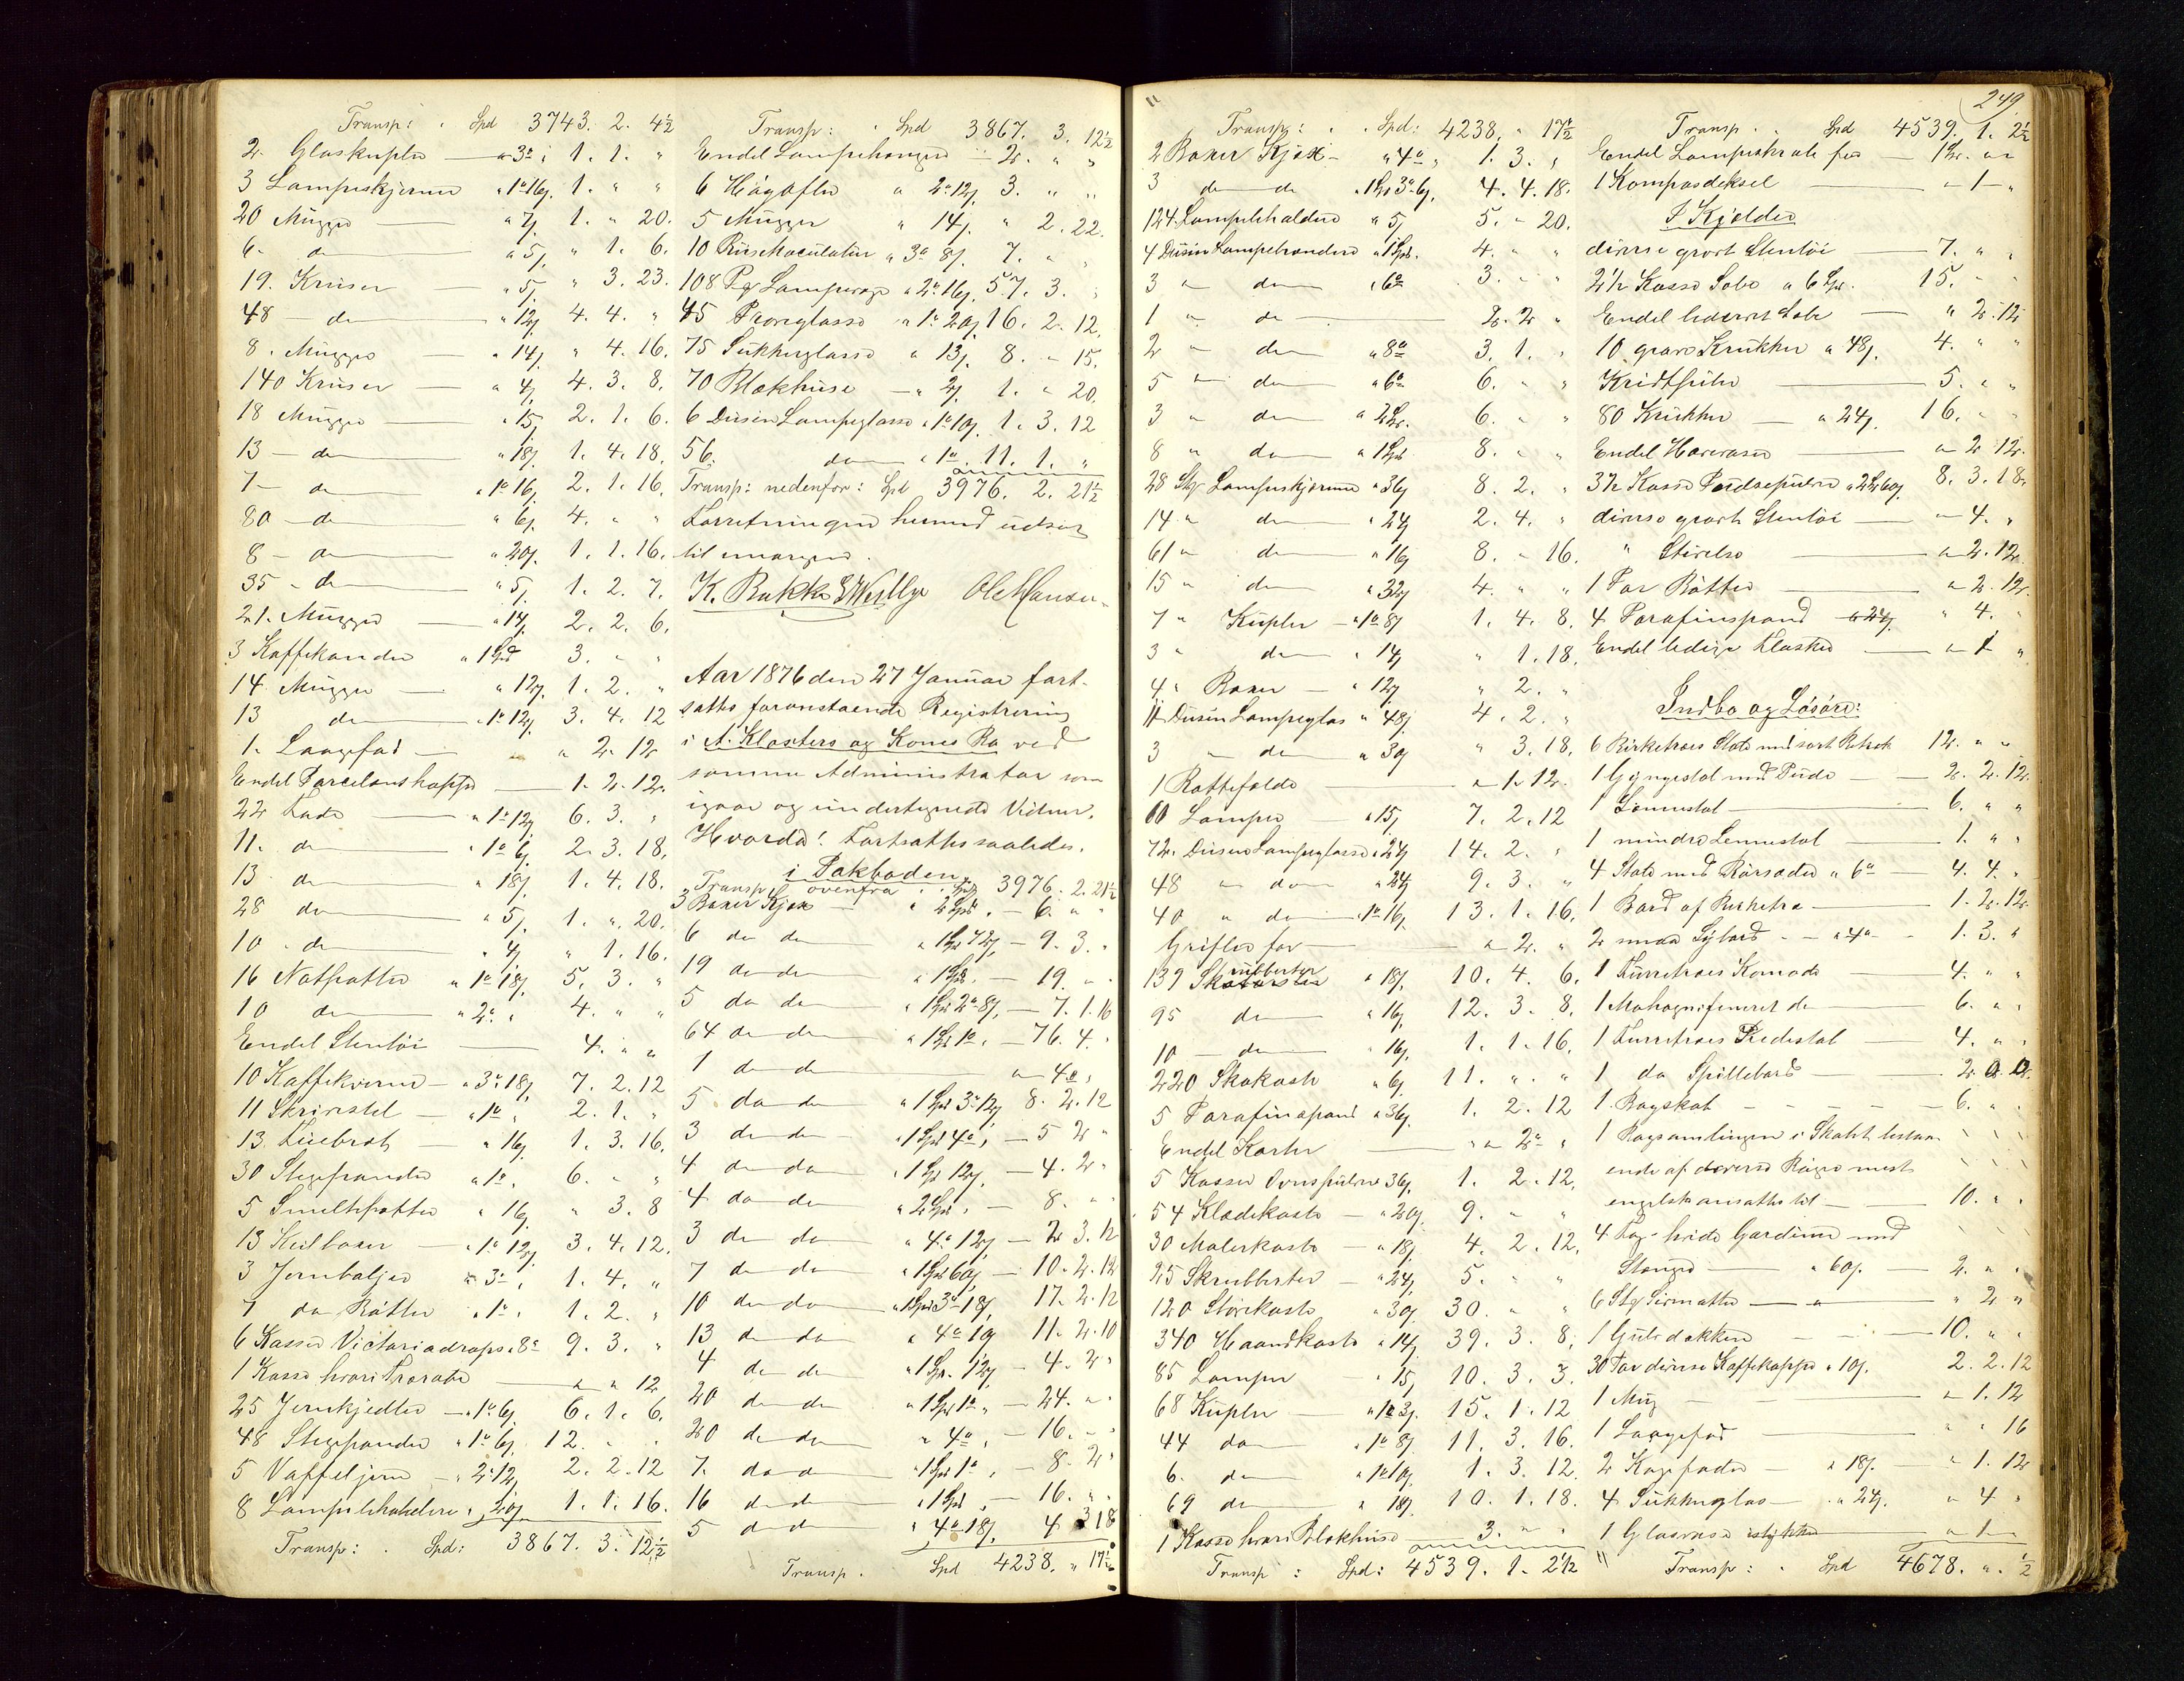 Transp: " Spd 3743. 2. 4½
2 Glaskupler — a 3o " 1. 1. "
3 Lampeskjerme " 1o 16ß 1. " "
20 Mugger — " 7ß 1. " 20.
6. do — " 5ß " 1. 6.
19. Kruser — " 5ß " 3. 23.
48 — do — " 12ß 4. 4. "
8. Mugger — " 14ß " 4. 16.
140 Kruser — " 4ß 4. 3. 8.
18 Mugger — " 15ß 2. 1. 6.
13 — do — " 18ß 1. 4. 18.
7 — do — " 1o 16ß 2. 1. 16.
80 — do — " 6ß 4. " "
8 — do — " 20ß 1. 1. 16.
35 — do — " 5ß 1. 2. 7.
21. Mugger — " 14ß 2. 2. 6.
3 Kaffekander " 1 Spd 3. " "
14 Mugger — " 12ß 1. 2. "
13 do — " 1o 12ß 3. 4. 12
1. Laagefad — " " 2. 12
Endel Porcelænskopper — 1. 2. 12.
22 Fade — " 1o 12ß 6. 3. "
11. do — " 1o 6ß 2. 3. 18.
13 do — " 18ß 1. 4. 18.
28 do — " 5ß 1. " 20.
10 " do — " 4ß " 1. 16.
16 Natpotter " 1o 18ß 5. 3. "
10 do — " 2o " 4. " "
Endel Stentöi — 4. " "
10 Kaffekverne — " 3o 18ß 7. 2. 12
11 Skrivestel — " 1o " 2. 1. "
13 — " 16ß 1. 3. 16.
30 Stegepander " 1o " 6. " "
5 Smeltepotter " 16ß " 3. 8
13 — " 1o 12ß 3. 4. 12.
3 Jernbaljer " 3o " 1. 4. "
7 do Bötter " 1o " 1. 2. "
6 Kasser Victoriadrops " 8o 9. 3. "
1 Kasse hvori — " " 12
25 Jernkjedler — " 1o 6ß 6. 1. 6.
48 Stegepander " 1o 6ß 12. " "
5 Vaffeljern — " 2o 12ß 2. 2. 12
8 Lampebeholdere " 20ß 1. 1. 16.
Transp: " Spd: 3867. 3. 12½
Transp: " Spd 3867. 3. 12½
Endel Lampehænger — 2. " "
6 " 2o 12ß 3. " "
5 Mugger " 14ß " 2. 22.
10 Riis Maculatur " 3o 8ß 7. " "
108 Pg Lampevæge " 2o 16ß 57. 3. "
45 " 1o 20ß 16. 2. 12.
75 Sukkerglasse " 13ß 8. " 15.
70 Blækhuse — " 2ß 1. " 20.
6 Dusin Lampeglasse " 1o 10ß 1. 3. 12
56. do " 1o 11. 1. "
Transp: nedenfor: Spd 3976. 2. 21½
Forretningen herned udsat
til imorgen.
K. Bakke E Westbye Ole Hansen
Aar 1876 den 27 Januar fort-
sattes foranstaaende Registrering
i A. Klosters og Kones Bo ved
samme Administrator som
igaar og undertegnede Vidner.
Hvorda! Fortsattes saaledes.
i Pakboden
Transp ovenfra " Spd 3976. 2. 21½
3 Baxer Kjæx — " 2 Spd. — 6. " "
6 do do — " 1 Spd 72ß — 9. 3. "
19 do do — " 1 Spd. — 19. " "
5 do do — " 1 Spd 2o 8ß. — 7. 1. 16
64 do do — " 1 Spd 1o. — 76. 4. "
1 do do — " 4o "
5 do do " 1 Spd 3o 12ß 8. 2. 12
3 do do — " 1 Spd 4o, — 5 2 "
4 do do " 1 Spd 12ß, — 4. 2 "
4 do do " 2 Spd. — 8. " "
3 do do " 4o 12ß — 2 3. 12
7 do do " 1 Spd 60ß — 10. 2. 12
10 do do " 1 Spd 3o 18ß, 17. 2. 12
13 do do " 4o 10 11. 2. 10
4 do do " 1 Spd. 12ß — 4. 2 "
20 do do " 1 Spd 1o " — 24. " "
20 do do " 4o, — 16. " "
7. do do " 1 Spd 1o, — 8. 2 "
16 do do " 1 Spd, — 16. " "
5 do do " 4o 18ß, 4 3 18
Transp. Spd 4238. " 17½
249
Transp: " Spd: 4238. " 17½
2 Baxer Kjæx — " 4o " 1. 3. "
3 do do " 1 Spd 3o 6ß, 4. 4. 18.
124. Lampeholdere " 5ß 5. " 20.
4 Dusin Lampebrændere " 1 Spd. 4. " "
3 " do " 6o 3. " "
1 " do — 2. 2 "
2 " do " 8o 3. 1. "
5 " do " 6o 6. " "
3 " do " 2 Sp. 6. " "
8 " do " 1 Spd 8. " "
28 Stk Lampeskjerme " 36ß 8. 2. "
14 " do " 24ß 2. 4. "
61 " do " 16ß 8. " 16.
15 " do " 32ß 4. " "
7 " Kupler — " 1o 8ß 1. 4. 8.
3 " do " 14ß " 1. 18.
4 " Baxer — " 12ß " 2. "
11 Dusin Lampeglas " 48ß 4. 2. "
3 " do " 30 " 3. 18.
1 Rottefælde — " 1. 12.
60 Lamper — " 15ß 7. 2. 12
72. Dusin Lampeglasse " 24ß 14. 2. "
48 " do " 24ß 9. 3. "
40 " do — " 1o 16ß 13. 1. 16.
Grifler for — " 2. "
139 Skoskrubbester " 18ß 10. 4. 6.
95 do — " 16ß 12. 3. 8.
10 — do — " 16ß 1. 1. 16.
220 Skokoste " 6ß 11. " "
5 Parafinspand " 36ß. 1. 2. 12
Endel Korker — " " 2o "
5 Kasser Ovnspulver 36ß. 1. 2. 12.
54 Klædekoste — " 20ß 9. " "
30 Malerkoste — " 18ß 4. 2. 12.
25 Skrubbester — " 24ß 5. " "
120 Störrekoste " 30ß 30. " "
340 Haandkoste " 14ß 39. 3. 8.
85 Lamper " 15ß 10. 3. 3.
68 Kupler — " 1o 3ß. 15. 1. 12
44 do — " 1o 8ß 11. 3. 16.
6. do — " 1o 10ß 1. 3. 12.
69 do — " 18ß 10. 1. 18.
1 Kasse hvori Blækhuse — 3. " "
Transp : Spd: 4539. 1. 2½
Transp. " Spd 4539. 1. 2½
Endel Lampeskrab for — 12. " "
1 Kompasdeksel — " 1 — "
I Kjelder
diverse grovt Stentöi — 7. " "
2½ Kasse Sæbe " 6 Spd. 15. " "
Endel Sæbe — " 2. 12
10 grove Krukker " 48ß. 4. " "
Kridtpiber — 5. " "
80 Krukker — " 24ß. 16. " "
Endel — " 2 12.
3½ Kasse " 2 Sp 60ß 8. 3. 18.
diverse grovt Stentöi — " 4. "
" Stivelse — " 2. 12.
1 Par Bötter — " 2. 12.
4 Parafinspand " 24ß. " 4. "
Endel ledige Flasker — " 1 "
Indbo og Lösöre:
6 Birketræes Stole med sort Betræk 12. " "
1 Gyngestol med Pude — 2. 2. 12.
1 Lænestol — 6. " "
1 mindre Lænestol — 1. " "
4 Stole med Rörsæder " 6o — 4. 4. "
1 Bord af Birketræ — 1. 2. 12.
2 smaa Sybord — " 4o — 1. 3. "
1 Furretræes Komode — 4. " "
1 Mahognifineret do — 6. " "
1 Furretræes Pedestal — 4. " "
1 do Spillebord — 2. 0. 0.
1 Bogskab — 6. " "
1 Bogsamlingen i Skabet bestaa-
ende af diverse Böger mest
engelsk ansattes til — 10. " "
4 Fag hvide Gardiner med
Stænger — " 60ß. — 2. " "
6 Stk — " " 2 "
1 Gulvdækken — 10. " "
30 Par diverse Kaffekopper " 10ß. 2. 2. 12
1 Mug — " 1. 12
1 Laagefad — " " 16
2 Kagefade — " 18ß. — " 1. 12
4 Sukkerglas — " 24ß. " 4 "
1 Glasvase — " 1 —
Transp: " Spd 4678. " ½